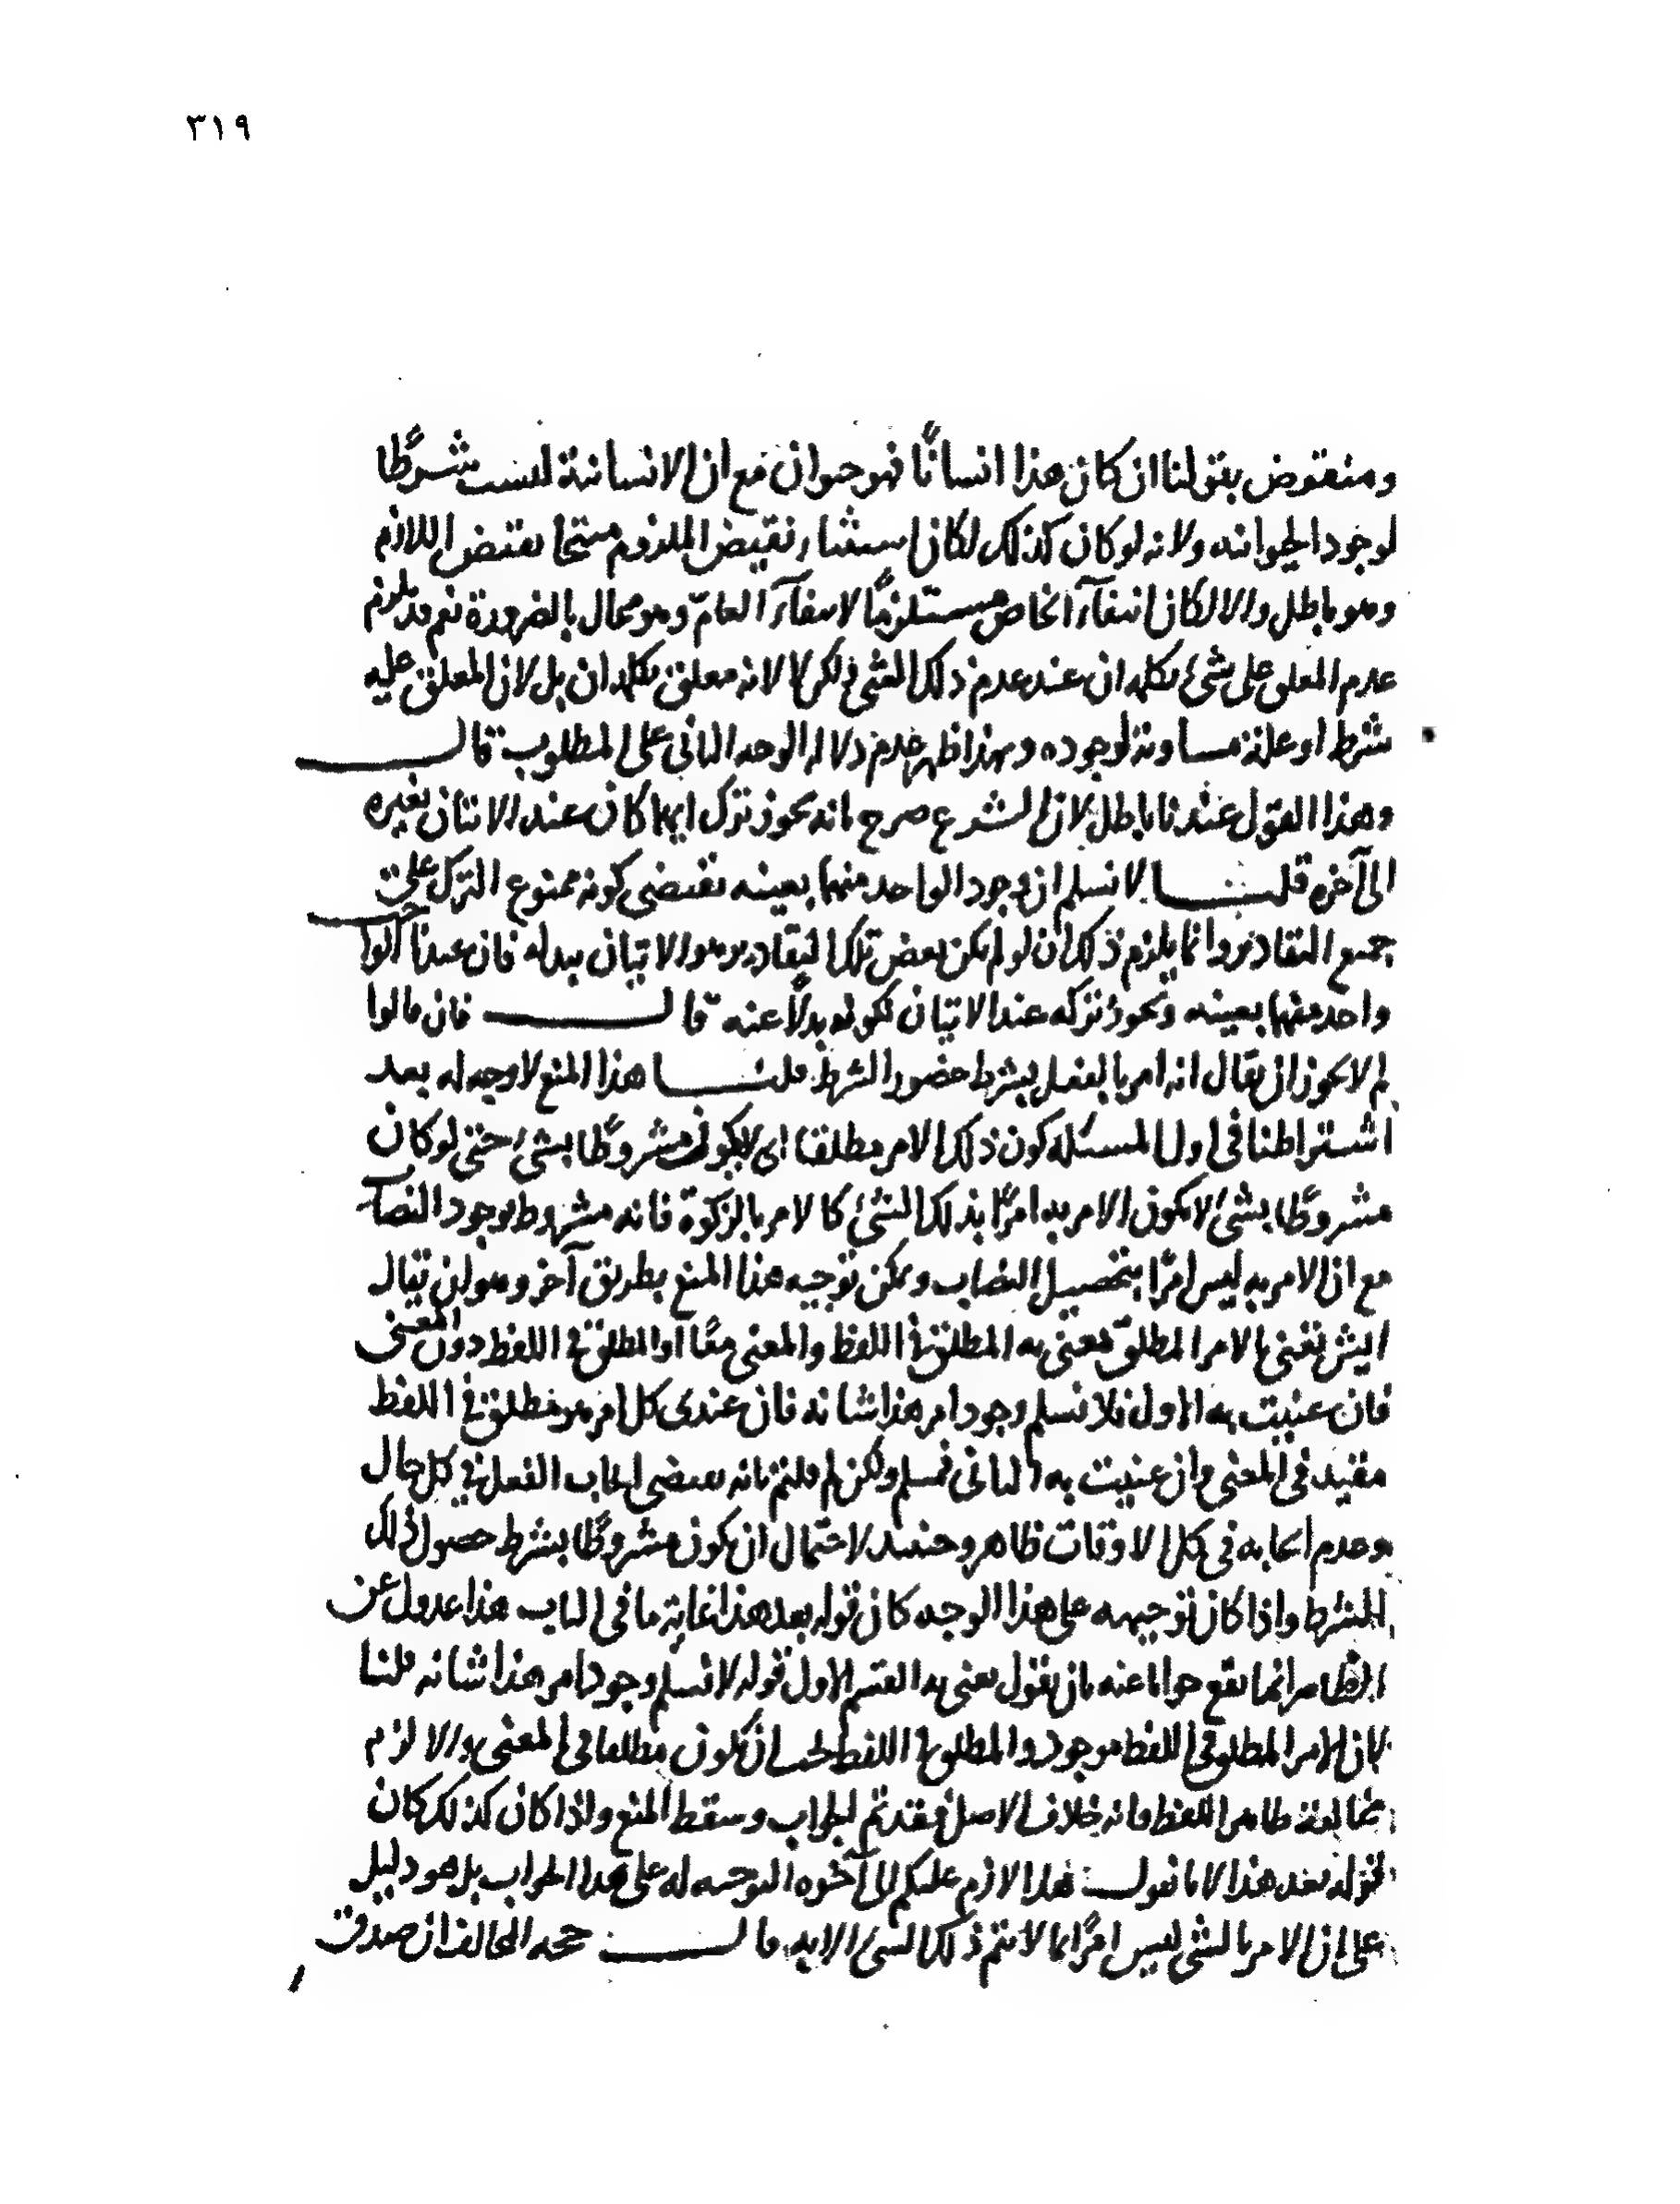 ٣١٩
ومنقوض بقولنا ان كان هذا انسانًا فهو حيوان مع ان الانسانية ليست شرطًا
لوجود الحيوانيه ولانه لو كان كذلك لكان استثناء نقيض الملزوم منتجا نقيض اللازم
وهو باطل والا لكان انتفآء الخاص مستلزمًا لانتفآء العامّ وهو محال بالضرورة نعم قد يلزم
عدم المعلق على شئ بكلمه ان عند عدم ذلك الشئ لكن لا لانه معلق بكلمه ان بل لان المعلق عليه
شرط او علة مساوية لوجوده وبهذا ظهر عدم دلاله الوجه الثانى على المطلوب قال
وهذا القول عندنا باطل لان الشرع صرح بانه يجوز ترك ايهما كان عند الاتيان بغيره
الى آخره قلنا لا نسلم ان وجود الواحد منهما بعينه يقتضى كونه ممنوع الترك على
جميع التقادير وانما يلزم ذلك ان لو لم يكن بعض تلك التقادير وهو الاتيان ببدله فان عندنا الواجب
واحد منهما بعينه ويجوز تركه عند الاتيان بكونه بدلًا عنه قال فان قالوا
لم لا يجوز ان يقال انه امر بالفعل بشرط حضور الشرط قلنا هذا المنع لا وجه له بعد
اشتراطنا فى اول المسئله كون ذلك الامر مطلقا اى لا يكون مشروطًا بشئ حتى لو كان
مشروطًا بشئ لا يكون الامر به امرًا بذلك الشئ كالامر بالزكوة فانه مشروط بوجود النصاب
مع ان الامر به ليس امرًا بتحصيل النصاب ويمكن توجيه هذا المنع بطريق آخر وهو ان يقال
ايش نعنى بالامر المطلق نعنى به المطلق فى اللفظ والمعنى معًا او المطلق فى اللفظ دون المعنى
فان عنيت به الاول فلا نسلم وجود امر هذا شانه فان عندى كل امر هو مطلق فى اللفظ
مقيد فى المعنى وان عنيت به الثانى فمسلم ولكن لم قلتم بانه يقتضى ايجاب الفعل فى كل حال
وعدم ايجابه فى كل الاوقات ظاهر وحينئذ لاحتمال ان يكون مشروطًا بشرط حصول ذلك
الشرط واذا كان توجيهه على هذا الوجه كان قوله بعد هذا غاية ما فى الباب هذا عدول عن
الظاهر انما يقع جوابا عنه بان يقول نعنى به القسم الاول قوله لا نسلم وجود امر هذا شانه قلنا
لان الامر المطلق فى اللفظ موجود والمطلق فى اللفظ يجب ان يكون مطلقا فى المعنى والا لزم
مخالفة ظاهر اللفظ وانه خلاف الاصل فقد تم الجواب وسقط المنع واذا كان كذلك كان
قوله بعد هذا لانا نقول هذا لازم عليكم الى آخره لا توجيه له على هذا الجواب بل هو دليل
على ان الامر بالشئ ليس امرًا بما لا يتم ذلك الشئ الا به قال حجه المخالف ان صدق